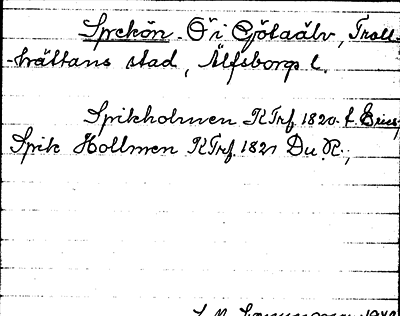 Spekön - Ö i Götaälv, Troll-
-hättans stad, Älfsborgs l.
Spikholmen KTrf. 1820.
Spik Hollmen KTrf. 1821 Du. R.,